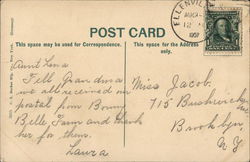 ELLENVILLE
1907
POST CARD
This space may be used for Correspondence.
This space for the Address only.
Aunt Lena
Tell Grandma
we all received
postal from Bonny
Belle, Farm and thank
her for them.
Laura
Miss Jacob.
715 Bushwick
Brooklyn
N Y